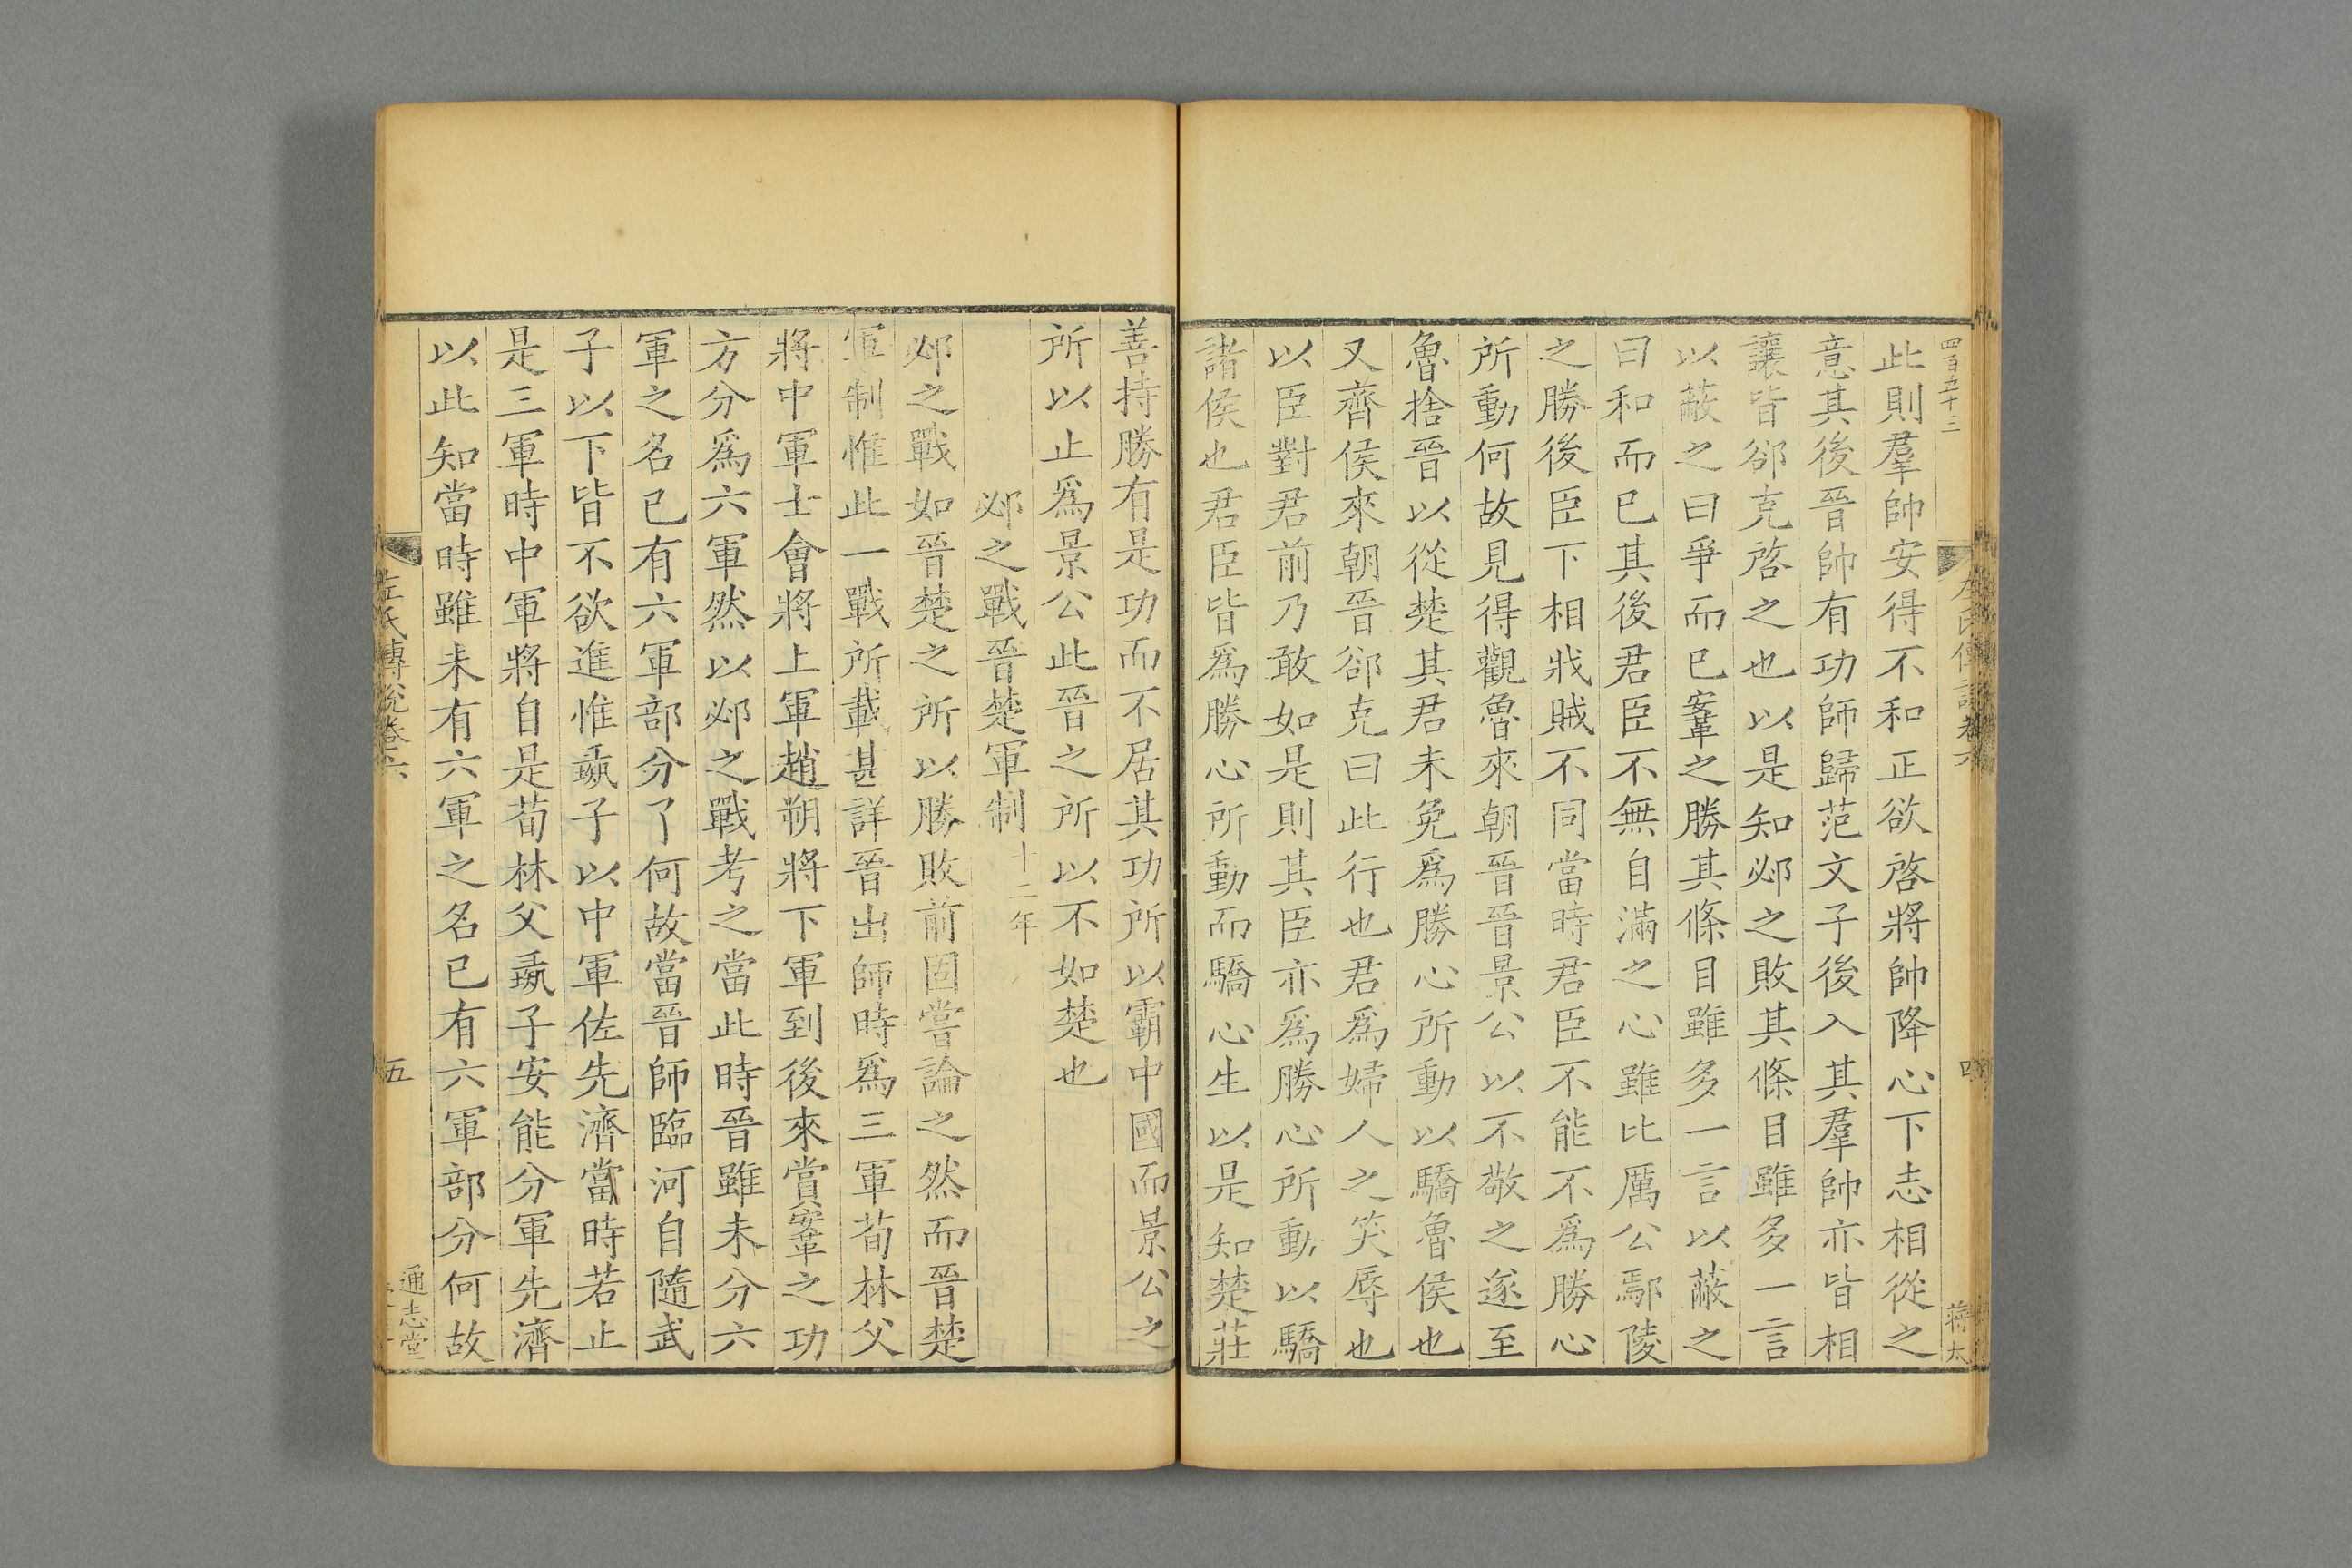 四百五十三
此則羣帥安得不和正欲啓將帥降心下志相從之
意其後晉帥有功師歸范文子後入其羣帥亦皆相
讓皆郤克啓之也以是知邲之敗其條目雖多一言
以蔽之曰爭而已鞌之勝其條目雖多一言以蔽之
曰和而已其後君臣不無自滿之心雖比厲公鄢陵
之勝後臣下相戕賊不同當時君臣不能不爲勝心
所動何故見得觀魯來朝晉晉景公以不敬之遂至
魯捨晉以從楚其君未免爲勝心所動以驕魯侯也
又齊侯來朝晉郤克曰此行也君爲婦人之笑辱也
以臣對君前乃敢如是則其臣亦爲勝心所動以驕
諸侯也君臣皆爲勝心所動而驕心生以是知楚莊
左氏傳說卷六
四
蔣太
善持勝有是功而不居其功所以霸中國而景公之
所以止爲景公此晉之所以不如楚也
邲之戰晉楚軍制十二年
邲之戰如晉楚之所以勝敗前固嘗論之然而晉楚
軍制惟此一戰所載甚詳晉出師時爲三軍荀林父
將中軍士會將上軍趙朔將下軍到後來賞鞌之功
方分爲六軍然以邲之戰考之當此時晉雖未分六
軍之名已有六軍部分了何故當晉師臨河自隨武
子以下皆不欲進惟彘子以中軍佐先濟當時若止
是三軍時中軍將自是荀林父彘子安能分軍先濟
以此知當時雖未有六軍之名已有六軍部分何故
左氏傳說卷六
五
通志堂